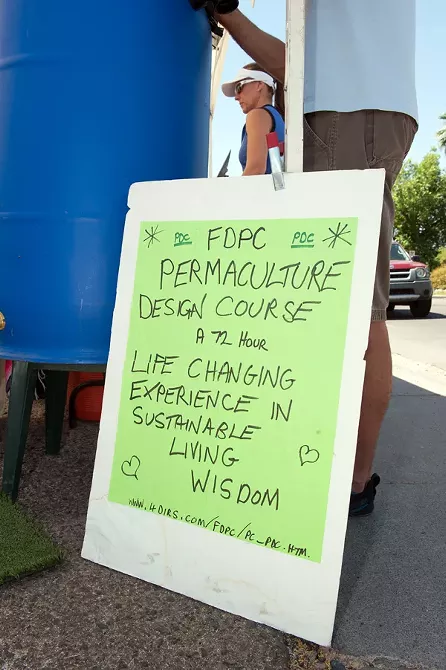 PDC FDPC PDC
PERMACULTURE
DESIGN COURSE
A 72 HOUR
LIFE CHANGING
EXPERIENCE IN
SUSTAINABLE
LIVING
WISDOM
WWW.4DIRS.COM/FDPC/PC_PDC.HTM